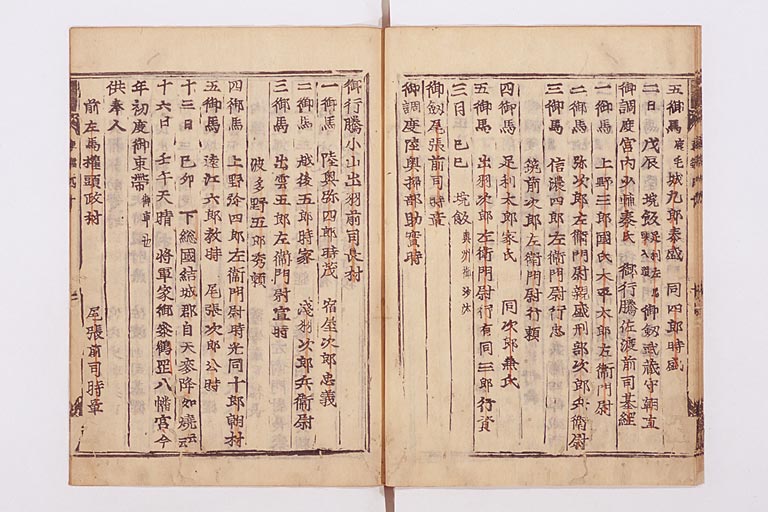 五御馬 鹿毛 城九郎泰盛 同四郎時盛
二日 戊辰 垸飯 足利左馬 御釼武蔵守朝直
御調度宮内少輔泰氏 御行騰佐渡前司基綱
一御馬 上野三郎國氏 太平太郎左衛門尉
二御馬 弥次郎左衛門尉親盛 刑部次郎兵衛尉
三御馬 信濃四郎左衛門尉行忠
筑前次郎左衛門尉行頼
四御馬 足利太郎家氏 同次郎兼氏
五御馬 出羽次郎左衛門尉行有 同三郎行資
三日 己巳 垸飯 奥州御沙汰
御釼尾張前司時章
御調度陸奥掃部助實時
御行騰小山出羽前司長村
一御馬 陸奥弥四郎時茂 宿屋次郎忠義
二御馬 越後五郎時家 淺羽次郎兵衛尉
三御馬 出雲五郎左衛門尉宣時
波多野五郎秀頼
四御馬 上野弥四郎左衛門尉時光 同十郎朝村
五御馬 遠江六郎教時 尾張次郎公時
十三日 己卯 下総國結城郡自天麥降如焼云云
十六日 壬午 天晴 將軍家御參鶴罡八幡宮今
年初度御束帶 御車也
供奉人
前左馬權頭政村 尾張前司時章